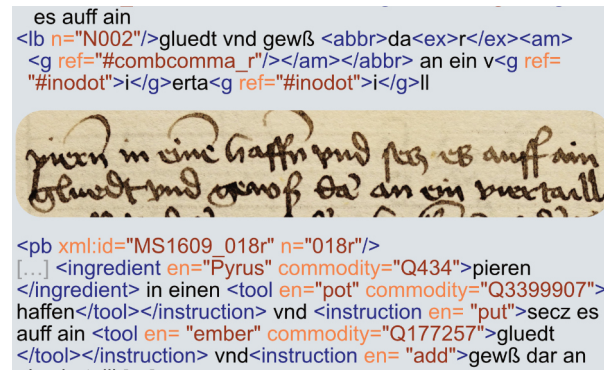 es auff ain
<lb n="N002"/>gluedt vnd gewß <abbr>da<ex>r</ex><am>
<g ref="#combcomma_r"/></am></abbr> an ein v<g ref=
"#inodot">i</g>erta<g ref="#inodot">i</g>ll
piern in eine haffn vnd secz es auff ain
gluedt vnd gewß da an ein viertaill
<pb xml:id="MS1609_018r" n="018r"/>
[…] <ingredient en="Pyrus" commodity="Q434">pieren
</ingredient> in einen <tool en="pot" commodity="Q3399907">
haffen</tool></instruction> vnd <instruction en= "put">secz es
auff ain <tool en= "ember" commodity="Q177257">gluedt
</tool></instruction> vnd<instruction en= "add">gewß dar an